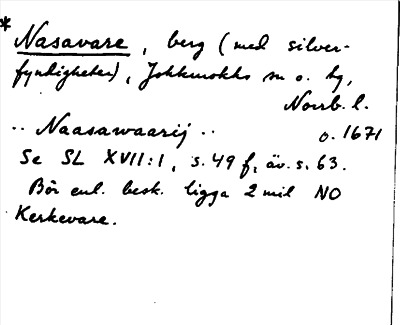 * Nasavare, berg (med silver-
fyndigheter), Jokkmokks sn o. hg,
Norrb. l.
.. Naasawaarij .. o. 1671
Se SL XVII:1, s. 49 f, äv. s. 63.
Bör enl. besk. ligga 2 mil NO
Kerkevare.